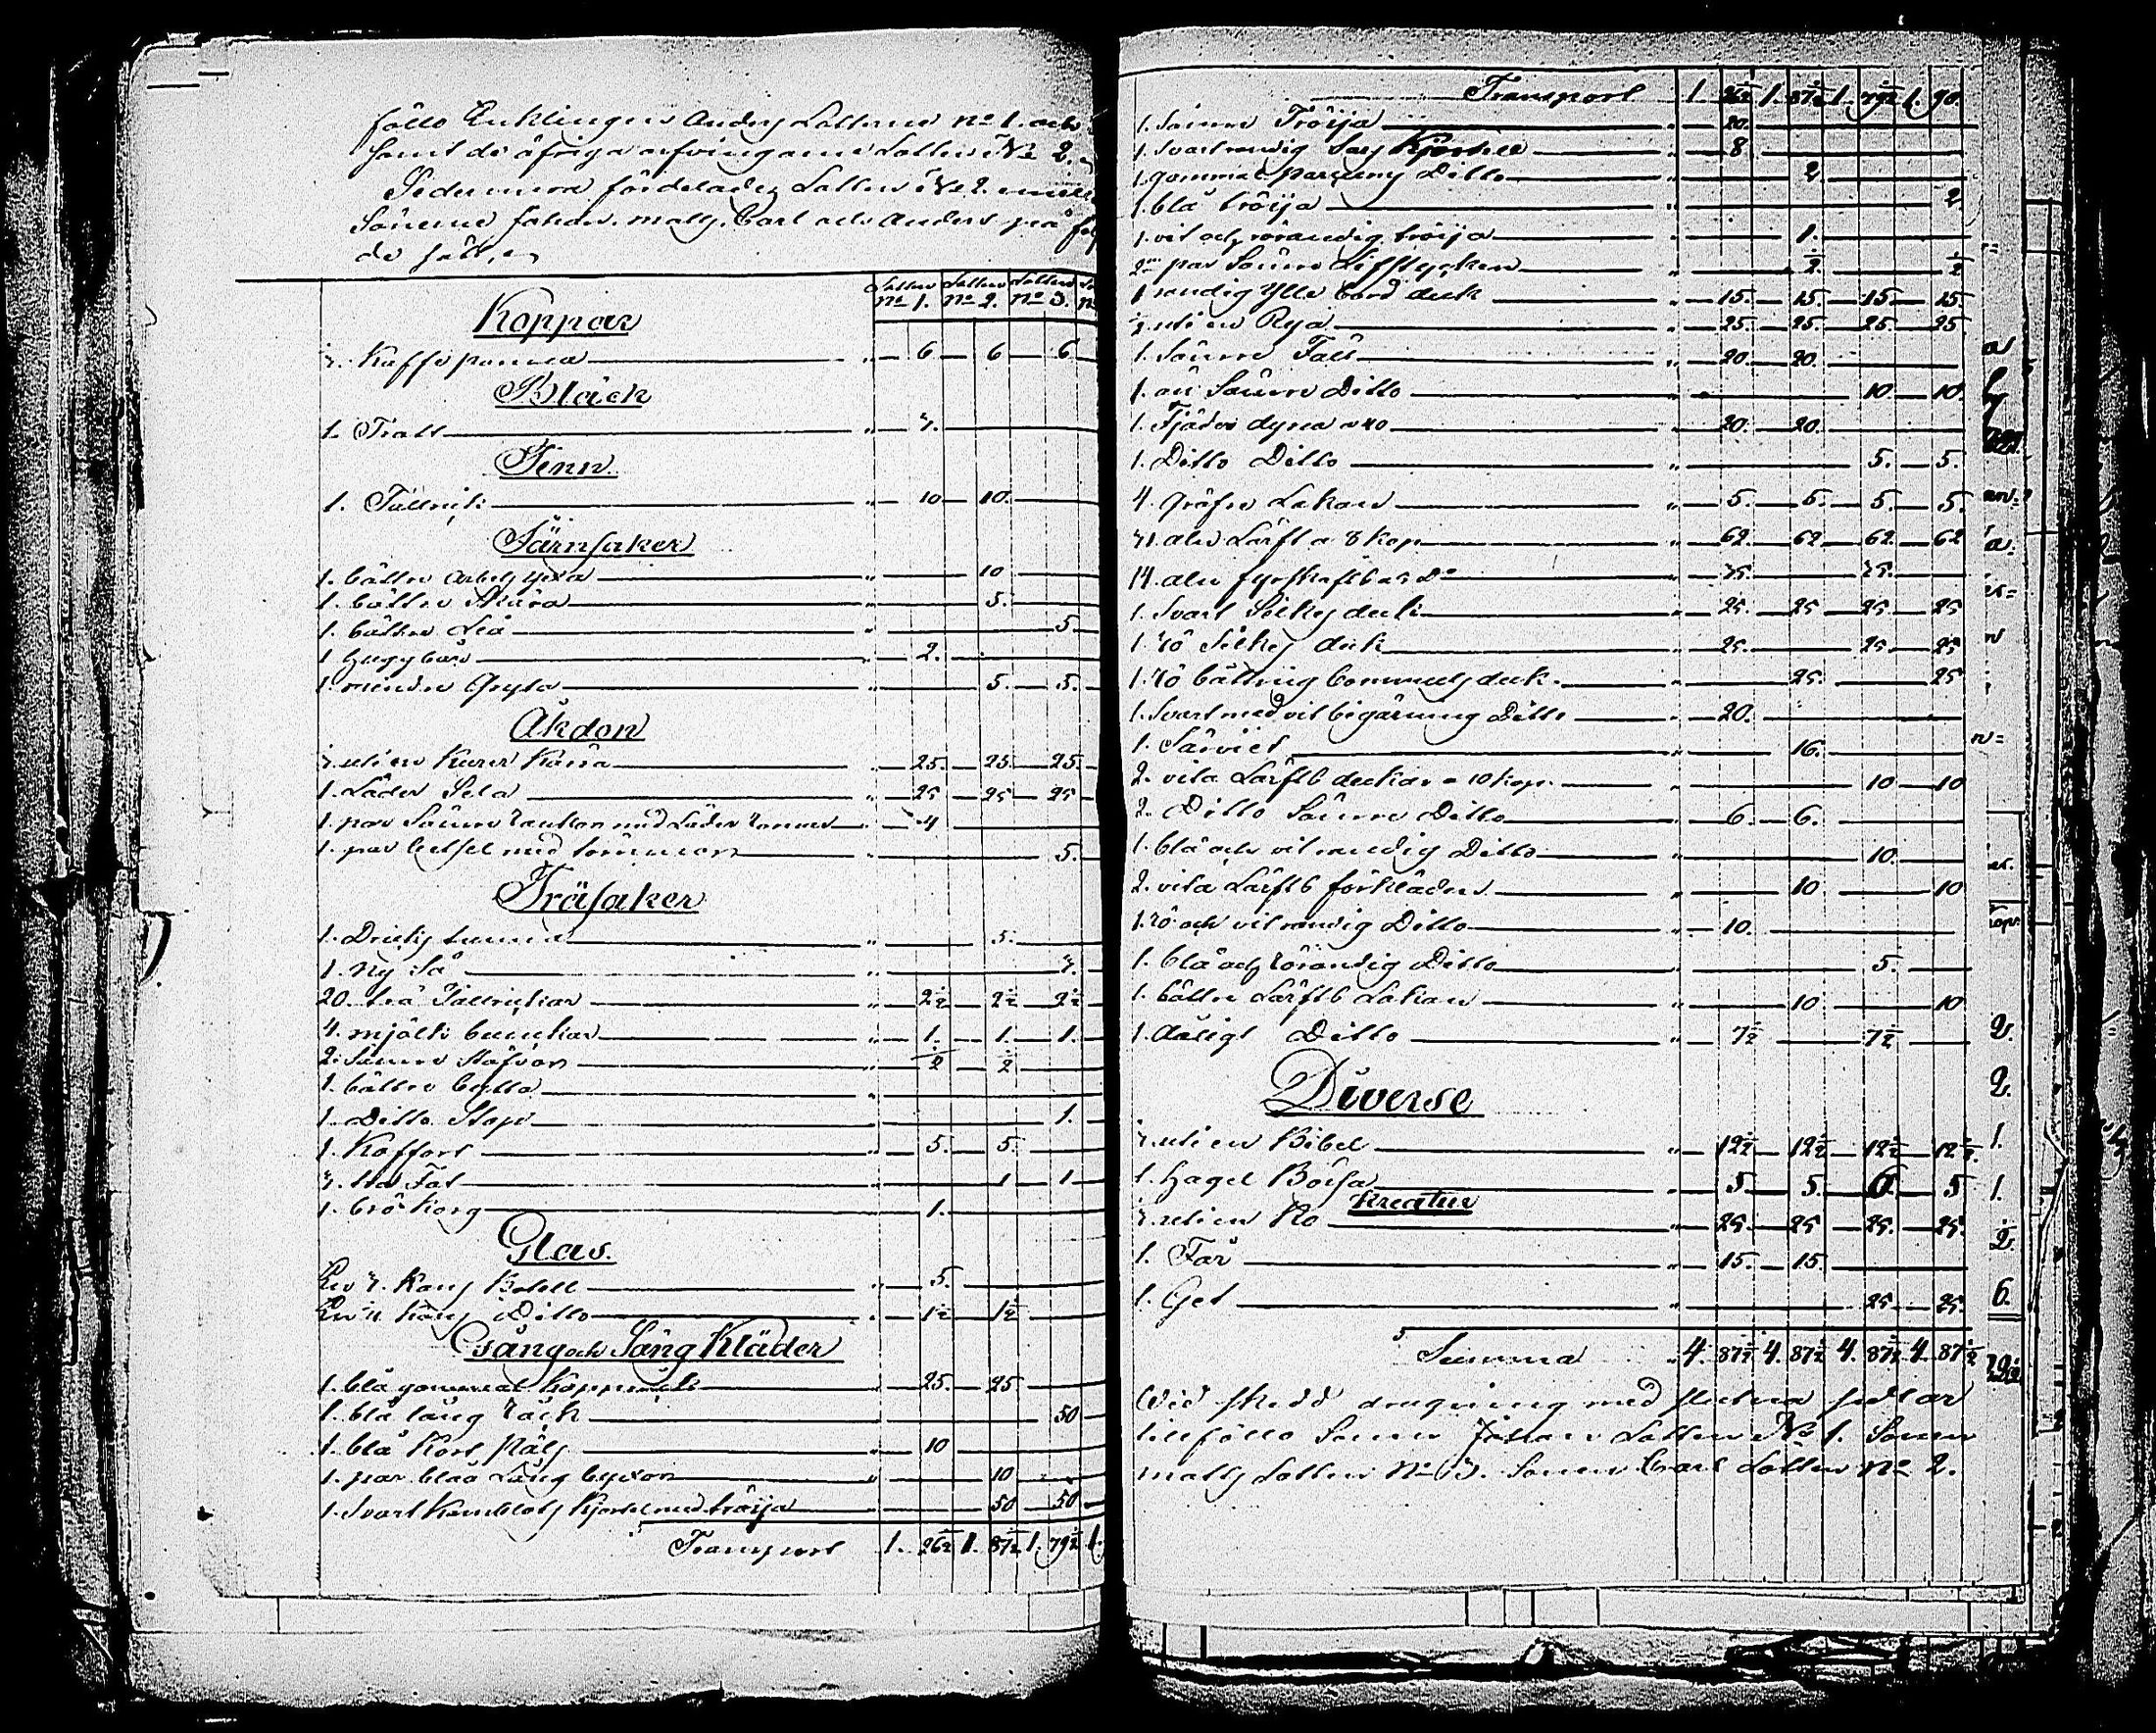 föllo Enklingen Anders Lotterne No 1. och
samt de öfriga arfvingarne Lotten No 2.
Sedermera fördelades Lotten No 2. emellan
Sönerne Johan. matts. Carl och Anders på föl
de sätt,
Lotten No 1. Lotten No 2. Lotten No 3.
Koppar
½. Kaffe panna — 6 — 6 — 6
Bläck
1. Tratt — ½.
Tenn
1. Tallrik — 10 — 10.
Järnsaker
1. bättre arbets yxa — 10
1. bättre Skära — 5.
1. bättre Liå — 5
1 Huggbär — 2.
1. mindre Gryta — 5. — 5.
Åkdon
½. uti en Kärra — 25. — 25. — 25.
1. Läder Sela — 25 — 25 — 25
1. par Sämre med Läder — 4
1. par betsel med tömmar — 5.
Träsaker
1. Dricks tunna — 5.
1. Ny Så — ½.
20. trä Tallrickar — 2½ — 2½ — 2½
4. mjölk bunckar — 1. — 1. — 1.
2. Sämre Stäfvor — ½ — ½
1. bättre bytta
1. Ditto Stop — 1.
1. Koffort — 5. — 5.
½. tra Fat — 1 — 1
1. brö Korg — 1.
Glas
En ½. Kans Botell — 5.
En ¼ Kans Ditto — 1½ — 1½
Gång och Säng Kläder
1. blå gammal — 25. — 25
1. blå lång Råck — 50
1. blå Kort Päls — 10
1. par blåa Lång byxor — 10
1. Svart Kamblots Kjortel med tröija — 50 — 50
Transport 1. 26½ 1. 87½ 1. 79½ 1.
Transport 1. 26½ 1. 87½ 1. 79½ 1. 90.
1. Sämre Tröija — 20.
1. Svart randig Kjortel — 8
1. gammal Ditto — 2.
1. blå tröija — 2
1. vit och rörandig tröija — 1.
2ne par Sämre Lifstycken — ½ — ½
1 randig Ylle bord duk — 15. — 15. — 15. — 15
½ uti en Rya — 25. — 25 — 25. — 25
1. Sämre Fäll — 20. — 20.
1. än Sämre Ditto — 10. — 10.
1. Fjäder dyna — 20. — 20.
1. Ditto Ditto — 5. — 5.
4. gröfre Lakan — 5. — 5. — 5. — 5.
31. aln Lärft a 8 kop — 62. — 62 — 62. — 62
14. aln fyrskaft — 75. — 75.
1. Svart Silkes duk — 25. — 25 — 25. — 25
1. rö Silkes duk — 25. — 25. — 25
1. rö bättring bommuls duk. — 25. — 25
1. Svart med vit Ditto — 20.
1. Särviet — 16.
2. vita Lärfts duckar a 10 kop. — 10 — 10
2. Ditto Sämre Ditto — 6. — 6.
1. blå och vit randig Ditto — 10.
2. vita Lärfts förkläden — 10 — 10
1. rö och vit randig Ditto — 10.
1. blå och rörandig Ditto — 5.
1. bättre Lärfts Lakan — 10 — 10
1. dåligt Ditto — 7½ — 7½
Diverse
½. uti en Bibel — 12½ — 12½ — 12½ — 12½.
1. Hagel Börsa — 5. — 5. — 6. — 5
Kreatur
½. uti en Ko — 25. — 25 — 25. — 25.
1. Får — 15. — 15.
1. Get — 25 — 25.
Summa 4. 87½ 4. 87½ 4. 87½ 4. 87½
Vid skedd dragning med slutna
tillföllo Sonen Johan Lotten No 1. Sonen
matts Lotten No 3. Sonen Carl Lotten No 2.